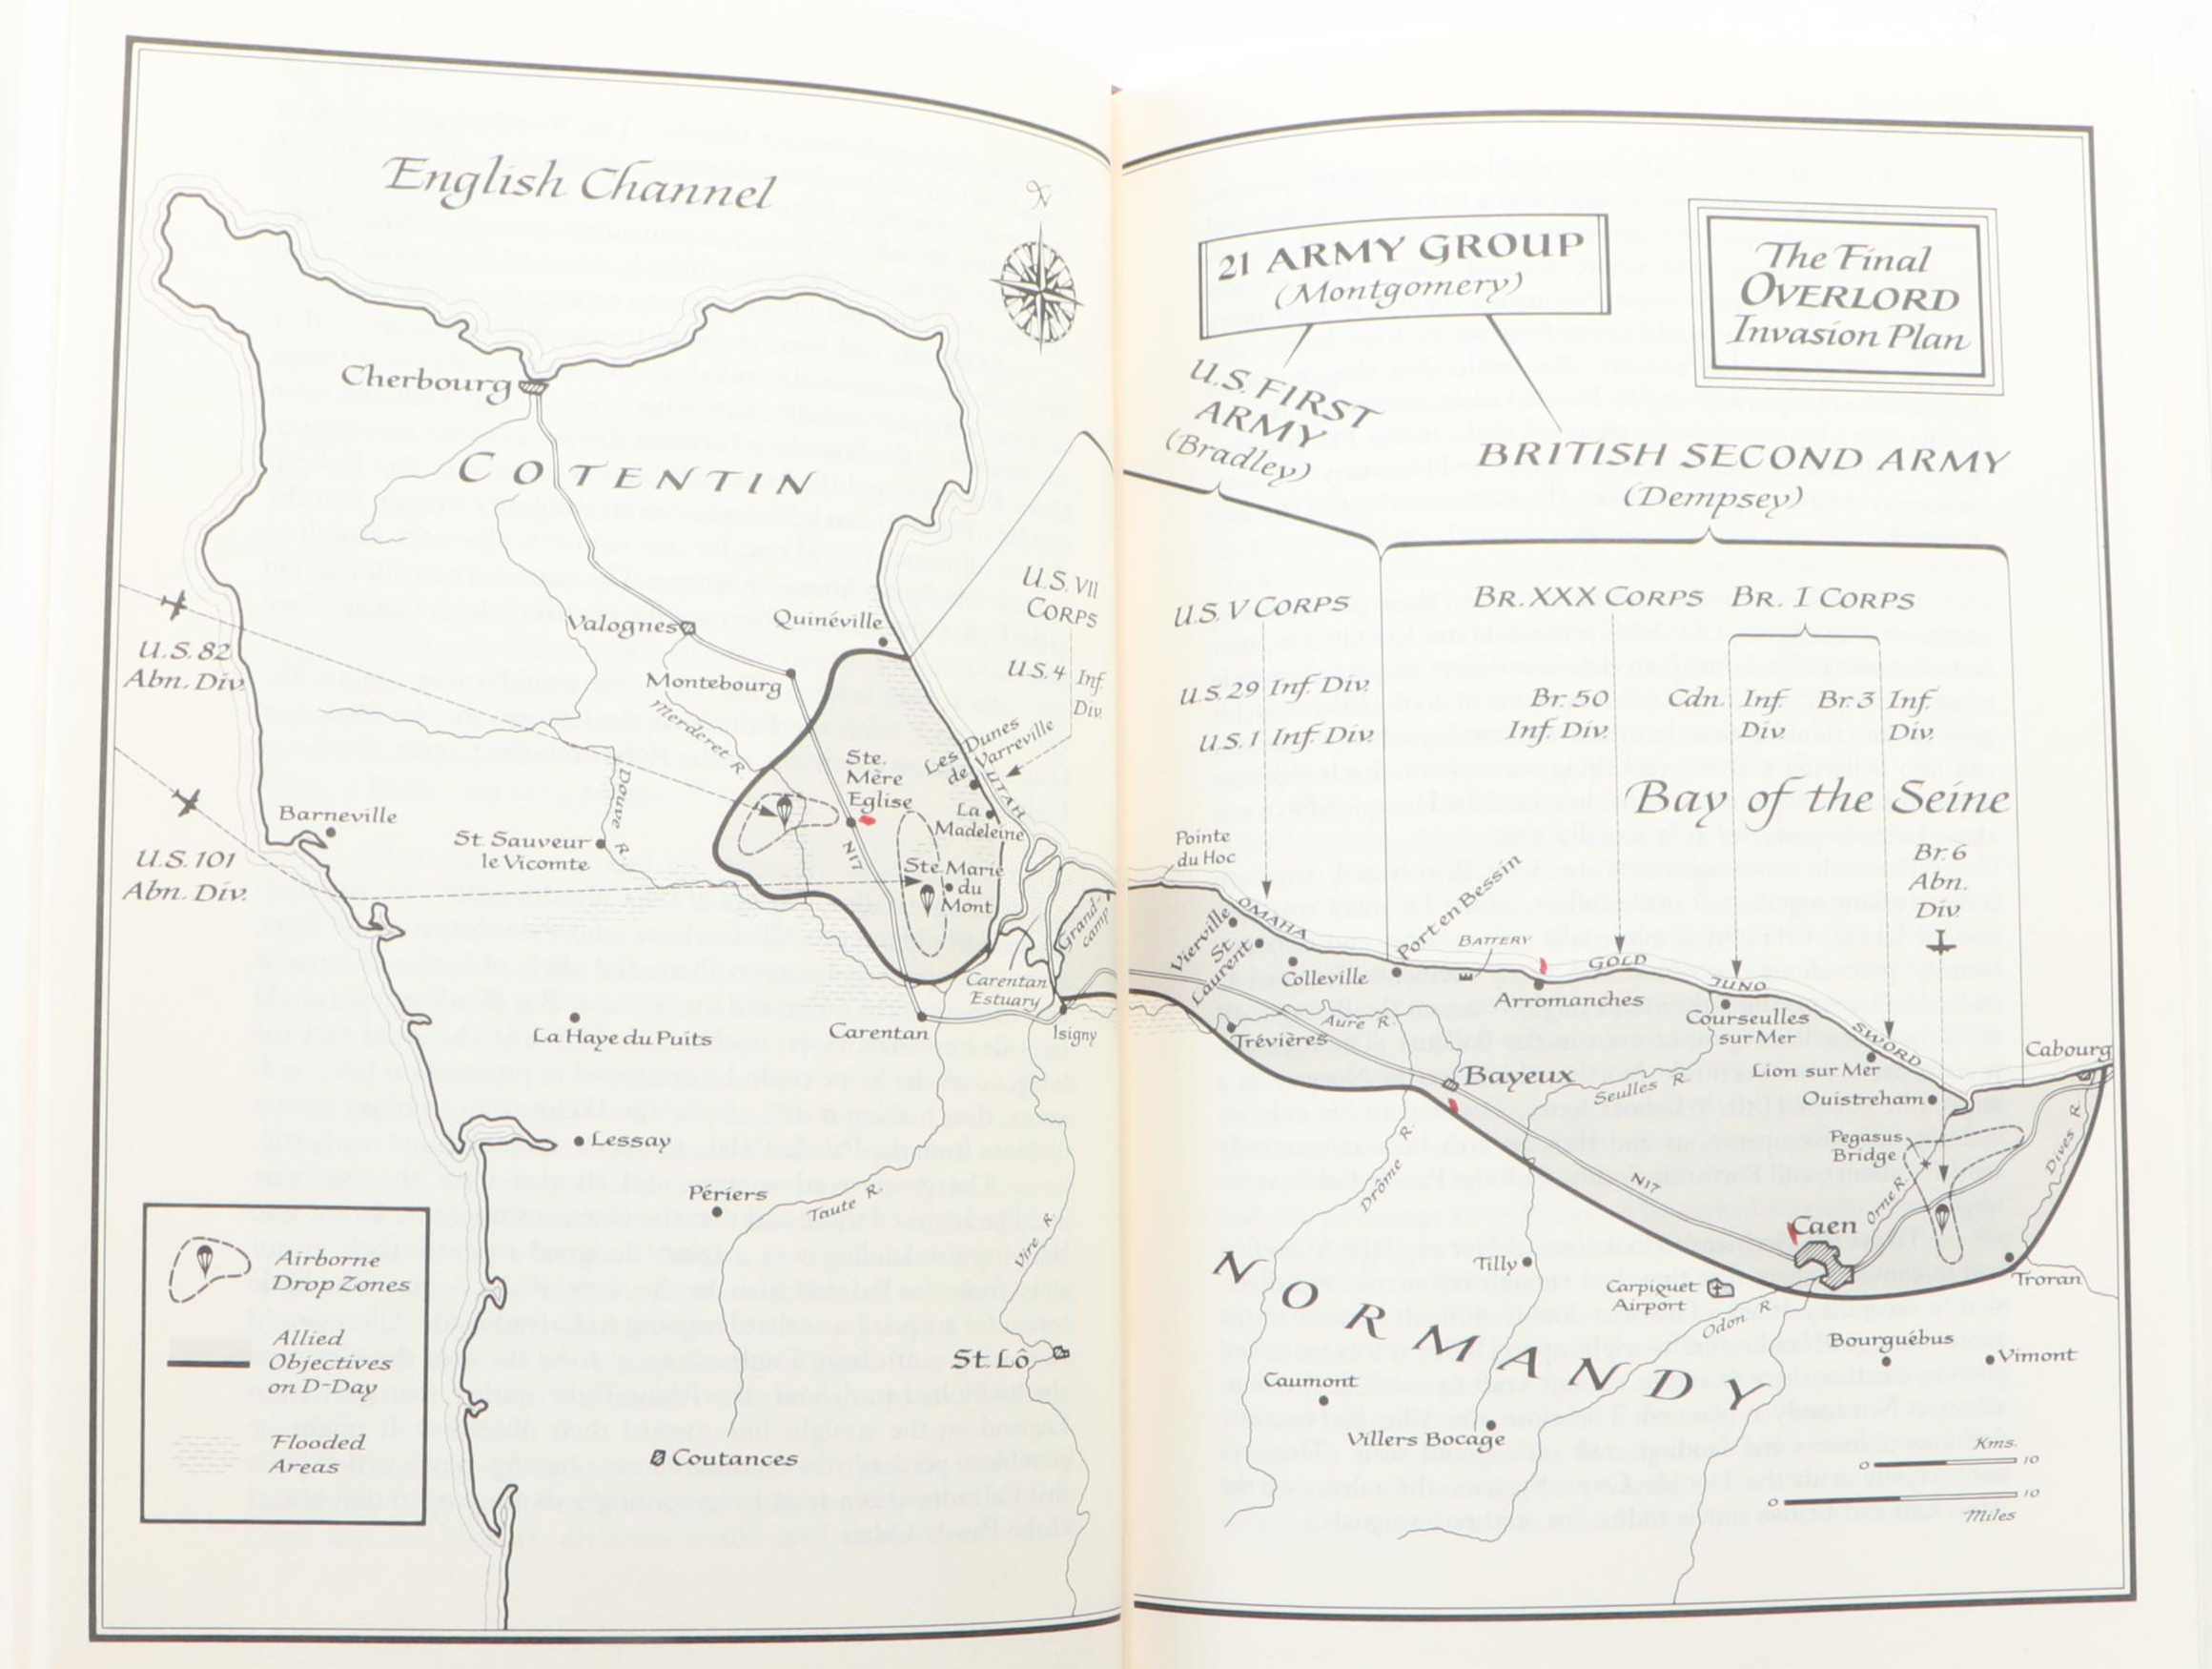 English Channel
N
Cherbourg
COTENTIN
U.S. VII
CORPS
U.S. 4 Inf.
Div.
U.S. 82
Abn. Div.
Valognes
Quinéville
Montebourg
Merderet R.
Les Dunes
de Varreville
UTAH
Ste.
Mère
Eglise
La
Madeleine
Barneville
Douve R.
St. Sauveur
le Vicomte
N17
U.S. 101
Abn. Div.
Ste. Marie
du
Mont
Grand-
camp
Carentan
Estuary
La Haye du Puits
Carentan
Isigny
Lessay
Périers
Taute R.
Vire R.
St. Lô
Coutances
Airborne
Drop Zones
Allied
Objectives
on D-Day
Flooded
Areas
21 ARMY GROUP
(Montgomery)
The Final
OVERLORD
Invasion Plan
U.S. FIRST
ARMY
(Bradley)
BRITISH SECOND ARMY
(Dempsey)
U.S. V CORPS
BR. XXX CORPS
BR. I CORPS
U.S. 29 Inf. Div.
U.S. 1 Inf. Div.
Br. 50
Inf. Div.
Cdn. Inf.
Div.
Br. 3 Inf.
Div.
Bay of the Seine
Pointe
du Hoc
Br. 6
Abn.
Div.
Vierville
St.
Laurent
OMAHA
Colleville
Port en Bessin
BATTERY
GOLD
Arromanches
JUNO
Courseulles
sur Mer
SWORD
Lion sur Mer
Cabourg
Trévières
Aure R.
Bayeux
Seulles R.
Ouistreham
Pegasus
Bridge
Dives R.
Drôme R.
N17
Orne R.
Caen
Tilly
Carpiquet
Airport
Troran
NORMANDY
Odon R.
Bourguébus
Vimont
Caumont
Villers Bocage
Kms.
0 10
0 10
Miles